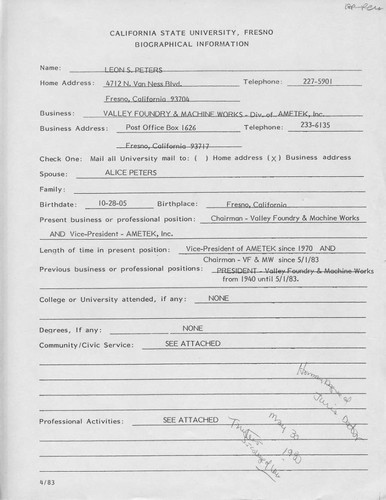 CALIFORNIA STATE UNIVERSITY, FRESNO
BIOGRAPHICAL INFORMATION
Name: LEON S. PETERS
Home Address: 4712 N. Van Ness Blvd. Telephone: 227-5901
Fresno, California 93704
Business: VALLEY FOUNDRY & MACHINE WORKS - Div. of AMETEK, Inc.
Business Address: Post Office Box 1626 Telephone: 233-6135
Fresno, California 93717
Check One: Mail all University mail to: ( ) Home address (X) Business address
Spouse: ALICE PETERS
Family:
Birthdate: 10-28-05 Birthplace: Fresno, California
Present business or professional position: Chairman - Valley Foundry & Machine Works
AND Vice-President - AMETEK, Inc.
Length of time in present position: Vice-President of AMETEK since 1970 AND
Chairman - VF & MW since 5/1/83
Previous business or professional positions: PRESIDENT - Valley Foundry & Machine Works
from 1940 until 5/1/83.
College or University attended, if any: NONE
Degrees, if any: NONE
Community/Civic Service: SEE ATTACHED
Honorary Degree of
Juris Doctor
Professional Activities: SEE ATTACHED
May 30
1980
4/83